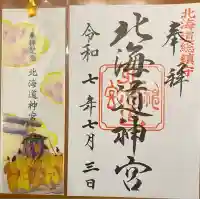 奉拝記念
北海道神宮
北海道総鎮守
奉拝
北海道神宮
令和七年七月三日